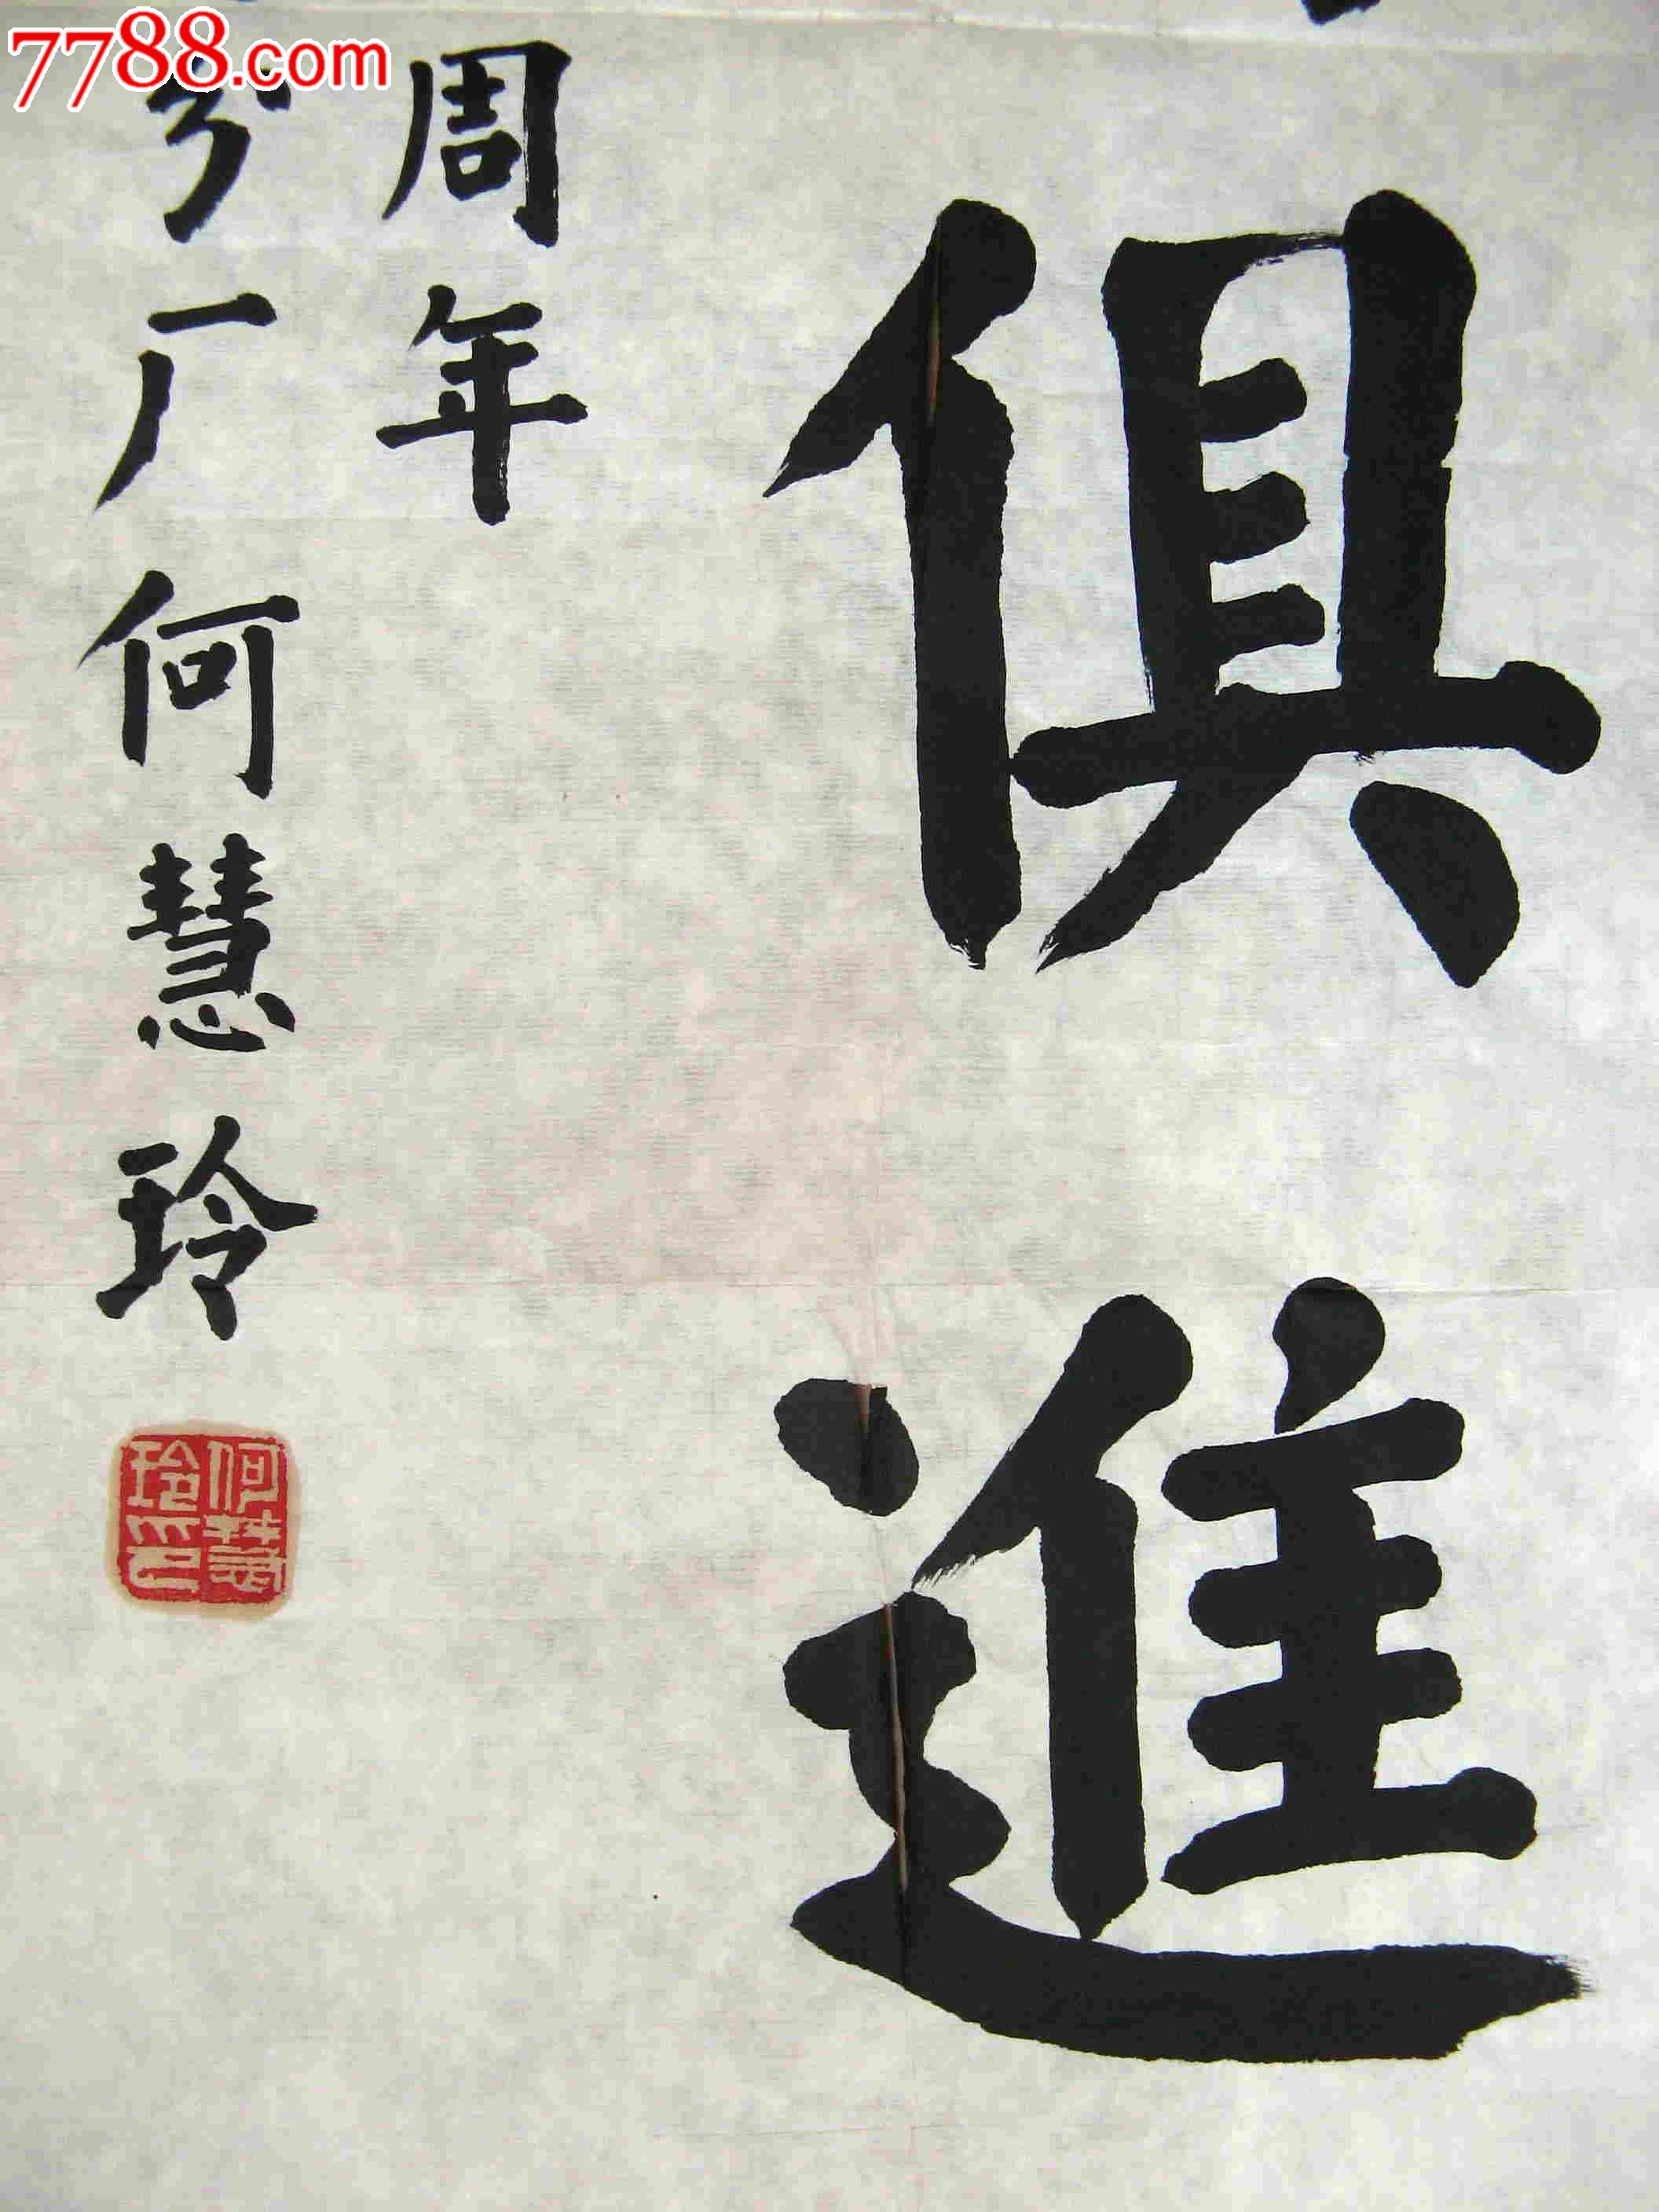 俱進
周年
分厂何慧玲
何慧玲印
7788.com